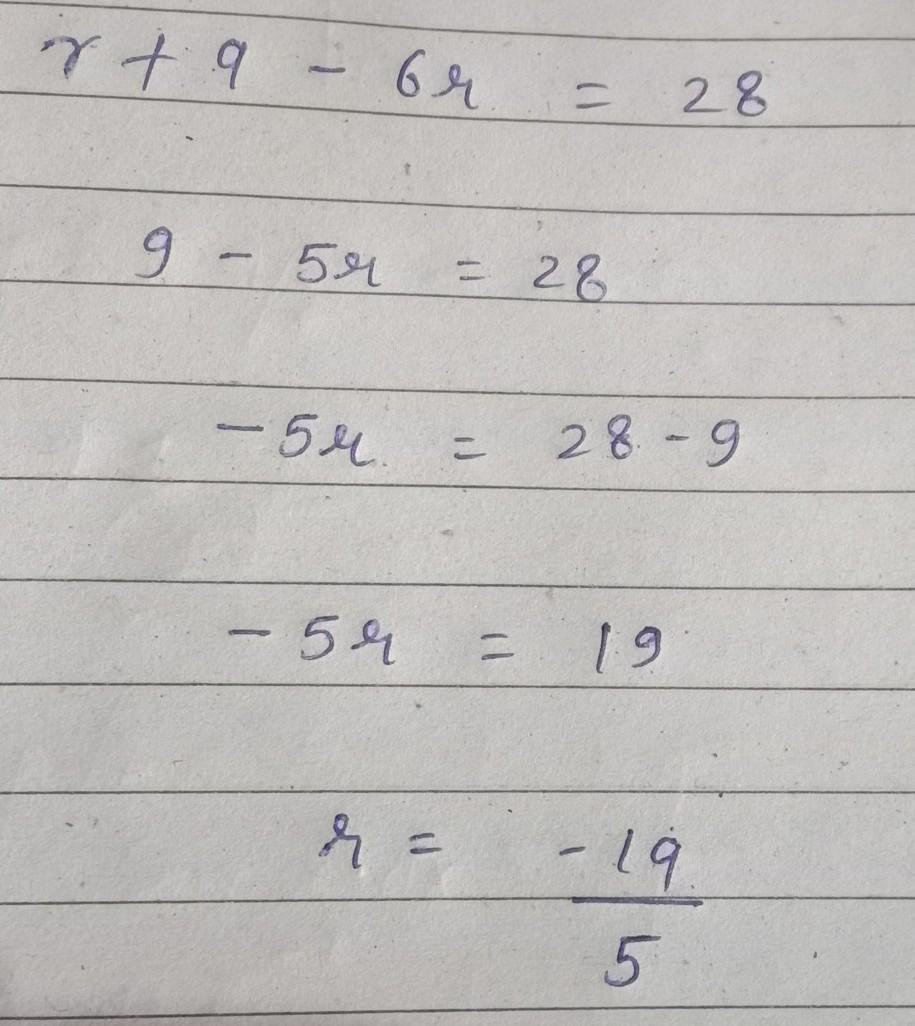 r + 9 - 6r = 28
9 - 5r = 28
- 5r = 28 - 9
- 5r = 19
r = -19
5